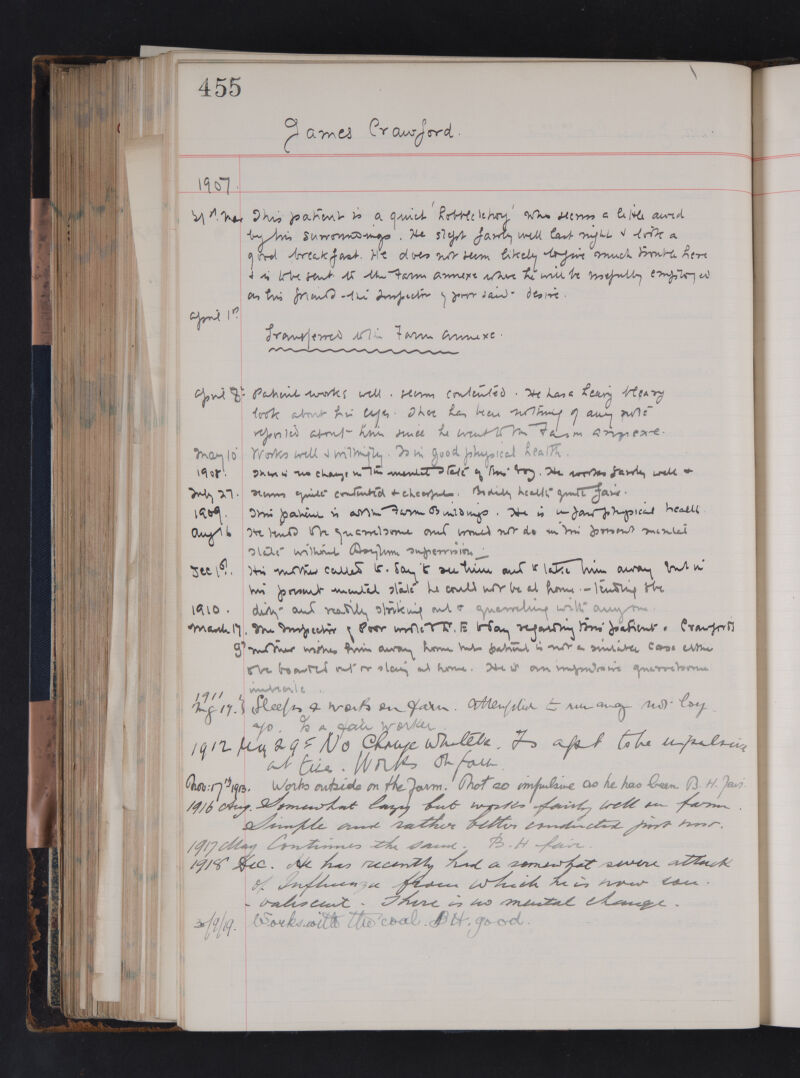 455
James Crawford.
1907.
31st Mar This patient is a quiet 'hobbledehoy' who seems a little awed
by his surroundings. He slept fairly well last night & took a
good breakfast. He does not seem likely to give much trouble here
& is to be sent to the Farm annexe where he will be usefully employed
as his friend - the Inspector of poor said - desire.
April 1st
Transferred to the Farm Annexe.
April 8th Patient works well. seems contented. He has a heavy bleary
look about his eyes. There has been nothing of any note
reported about him since he went to the Farm annexe.
May 10 Works well & willingly. Is in good physical health.
1908. There is no change in the mental state of this boy. He works fairly well &
July 27. seems quite contented & cheerful. Bodily health quite fair.
1909. This patient is at the Farm Buildings. He is in fair physical health
Aug 16 He tends to be quarrelsome and would not do in his present mental
state without Asylum supervision.
Dec 1st. His mother called to-day to see him and to take him away but in
his present mental state he could not be at home. - tending to be
1910. dirty and readily striking out & quarreling with anyone.
March 17. The Inspector of Poor wrote to Dr. E today regarding this patient. Crawford's
mother wishes him away home but patient is not a suitable case either
to be boarded out or stay at home. He is an impulsive quarrelsome
imbecile.
1911
Aug 17. Sleeps & works on farm. Attempted to run away not long
ago. Is a fair worker.
1912 Aug 29th No Change whatever. Is apt to be impulsive
at times. Works on farm.
Nov: 17th 1913. Works outside on the farm. Not so impulsive as he has been B.H. fair.
1916 Aug. Somewhat lazy but works fairly well on farm.
Simple and rather better conducted just now.
1917 May Continues the same. B.H fair.
1918 Dec. He has recently had a somewhat severe attack
of Influenza from which he is now con-
- valescent. There is no mental change.
/9/19. Works with the coal. B.H. good.